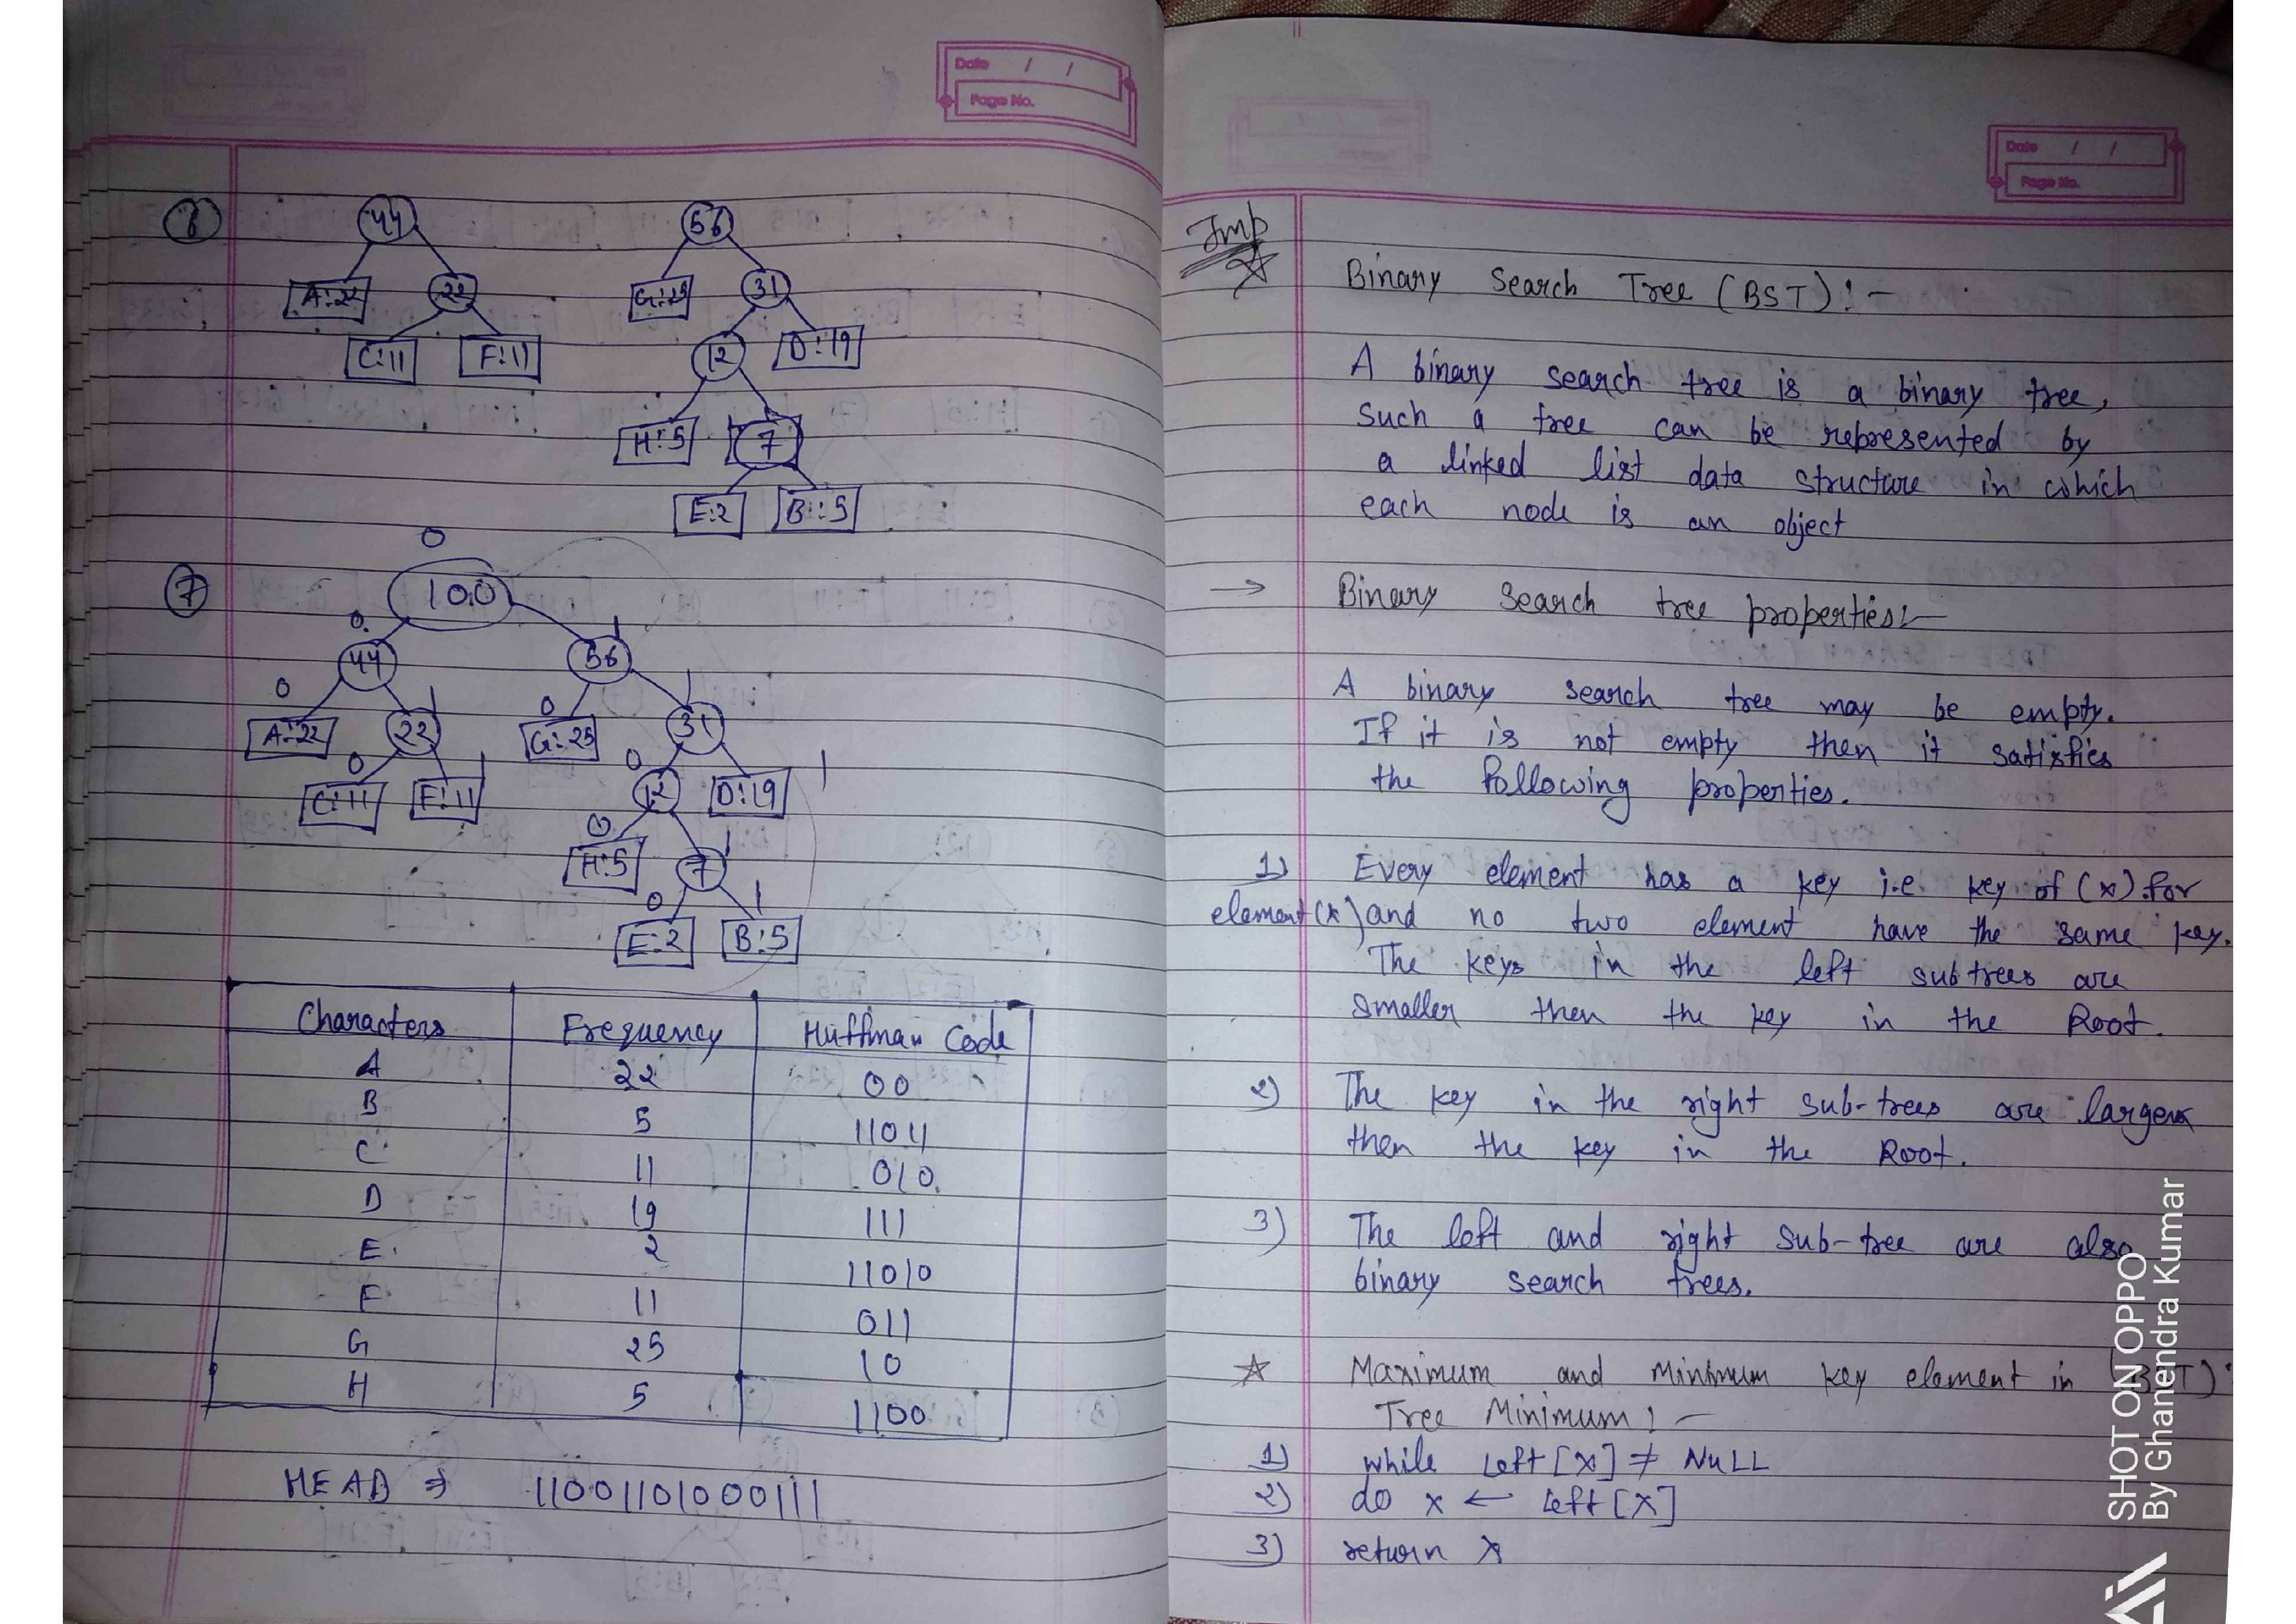 Date / /
Page No.
6
44 56
A:22 22 G:25 31
C:11 F:11 12 D:19
H:5 7
E:2 B:5
0
7 100
0 1
44 56
0 1 0 1
A:22 22 G:25 31
0 1 0 1
C:11 F:11 12 D:19
0 1
H:5 7
0 1
E:2 B:5
Characters Frequency Huffman Code
A 22 00
B 5 11011
C 11 010
D 19 111
E 2 11010
F 11 011
G 25 10
H 5 1100
HEAD ⇒ 11001101000111
Date / /
Page No.
Imp
☆ Binary Search Tree (BST):-
A binary search tree is a binary tree,
such a tree can be represented by
a linked list data structure in which
each node is an object
→ Binary Search tree properties:-
A binary search tree may be empty.
If it is not empty then it satisfies
the following properties.
1) Every element has a key i.e. key of (x) for
element (x) and no two element have the same key.
The keys in the left subtrees are
smaller then the key in the Root.
2) The key in the right sub-trees are larger
then the key in the Root.
3) The left and right sub-tree are also
binary search trees.
☆ Maximum and Minimum key element in (BST):
Tree Minimum:-
1) while Left[x] ≠ NULL
2) do x ← Left[x]
3) return x
SHOT ON OPPO
By Ghanendra Kumar